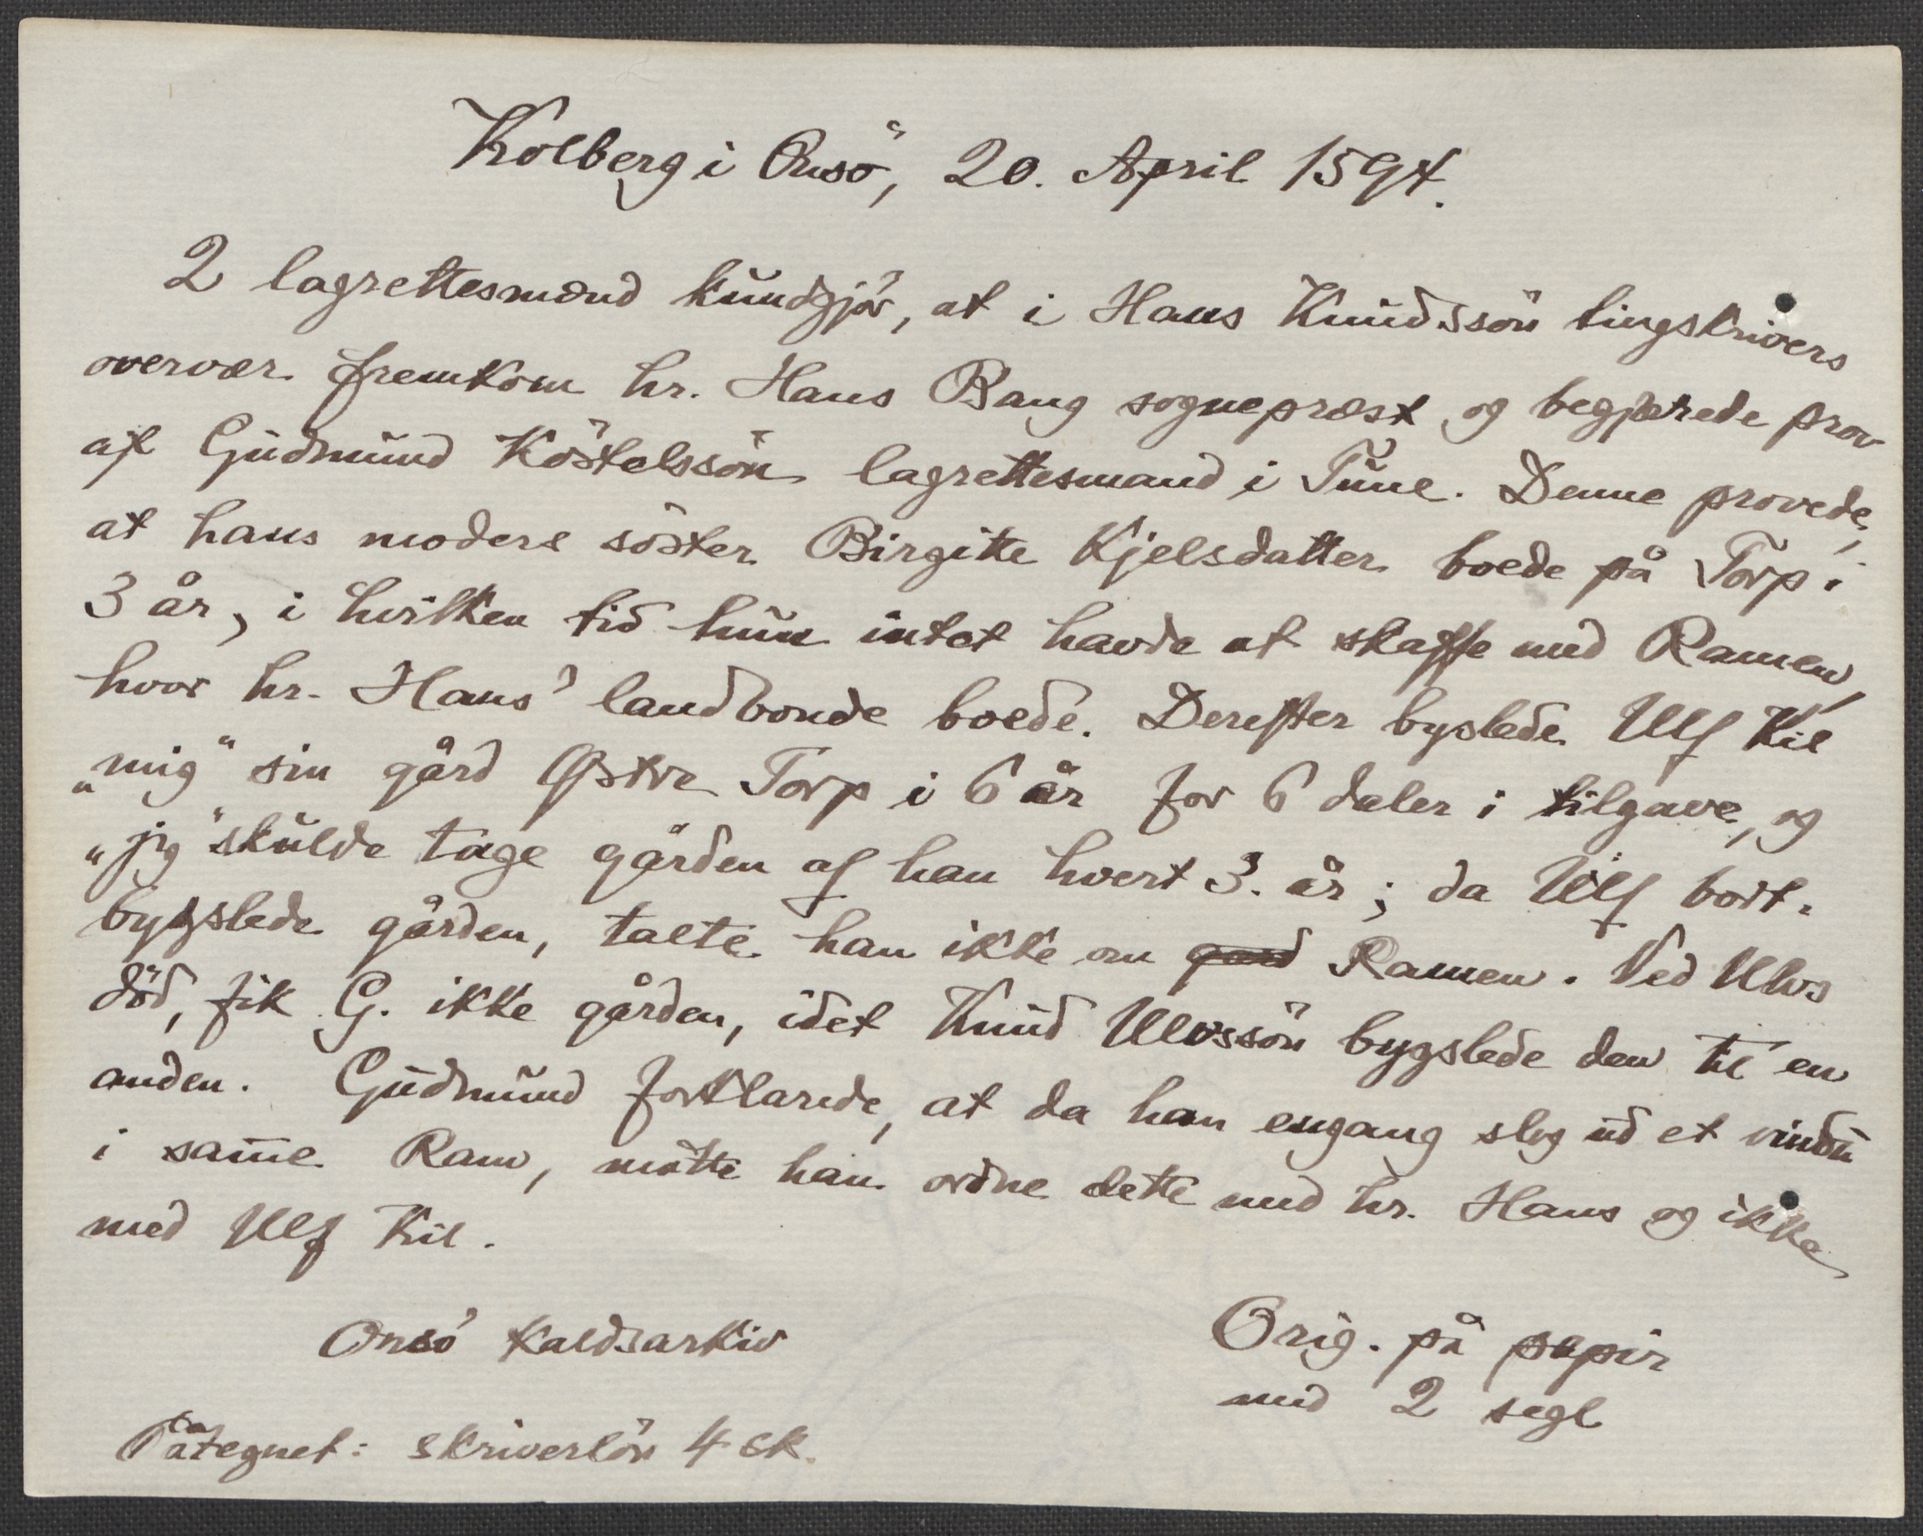 Kolberg i Onsö, 20. April 1594.
2 lagrettesmænd kundgjör, at i Hans Knudssön tingskrivers
overvær fremkom hr. Hans Bang sognepræst og begjærede prov
af Gudmund Köstelssön lagrettesmand i Tune. Denne provede,
at hans moders söster Birgitte Kjelsdatter boede på Torp i
3 år, i hvilken tid hun intet havde at skaffe med Ramen,
hvor hr. Hans' landbonde boede. Derefter byslede Ulf Kil
„mig“ sin gård Østre Torp i 6 år for 6 daler i tilgave, og
„jeg“ skulde tage gården af han hvert 3. år; da Ulf bort-
bygslede gården, talte han ikke om gard Ramen. Ved Ulvs
död, fik G. ikke gården, idet Knud Ulvssön bygslede den til en
anden. Gudmund forklarede, at da han engang slog ud et vindu
i sam̄e Ram, måtte han ordne dette med hr. Hans og ikke
med Ulf Kil.
Onsö kaldsarkiv
Orig. på papir
med 2 segl
Påtegnet: skriverlön 4 sk.